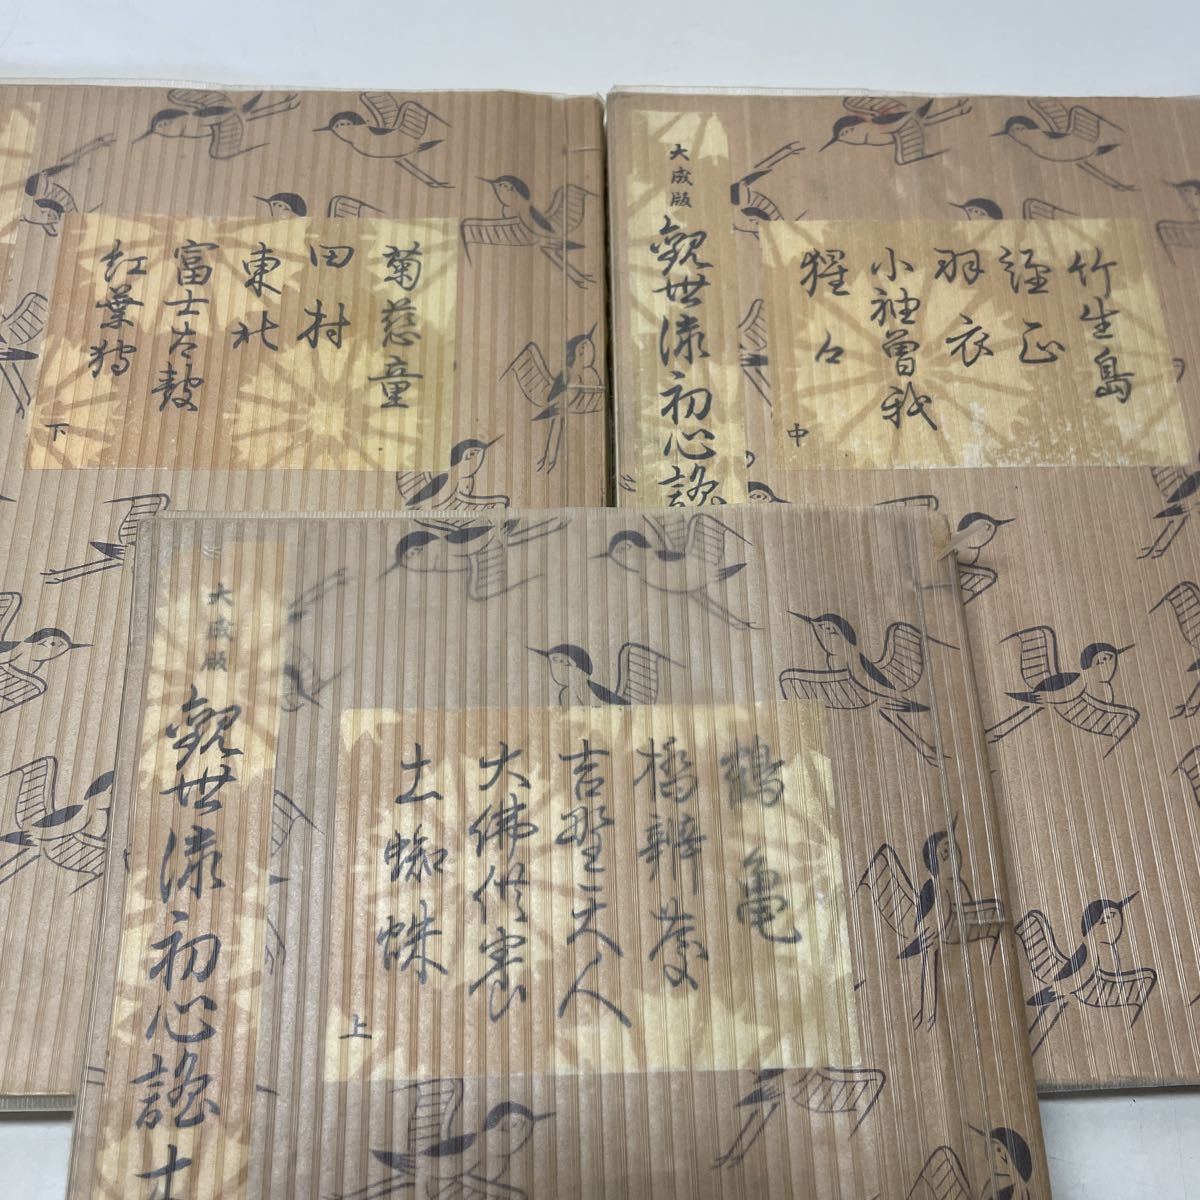 大成版
觀世流初心謠本
鶴亀
橋辨慶
吉野天人
大佛供養
土蜘蛛
上
大成版
觀世流初心謠
竹生島
經正
羽衣
小袖曽我
猩々
中
菊慈童
田村
東北
富士太鼓
紅葉狩
下